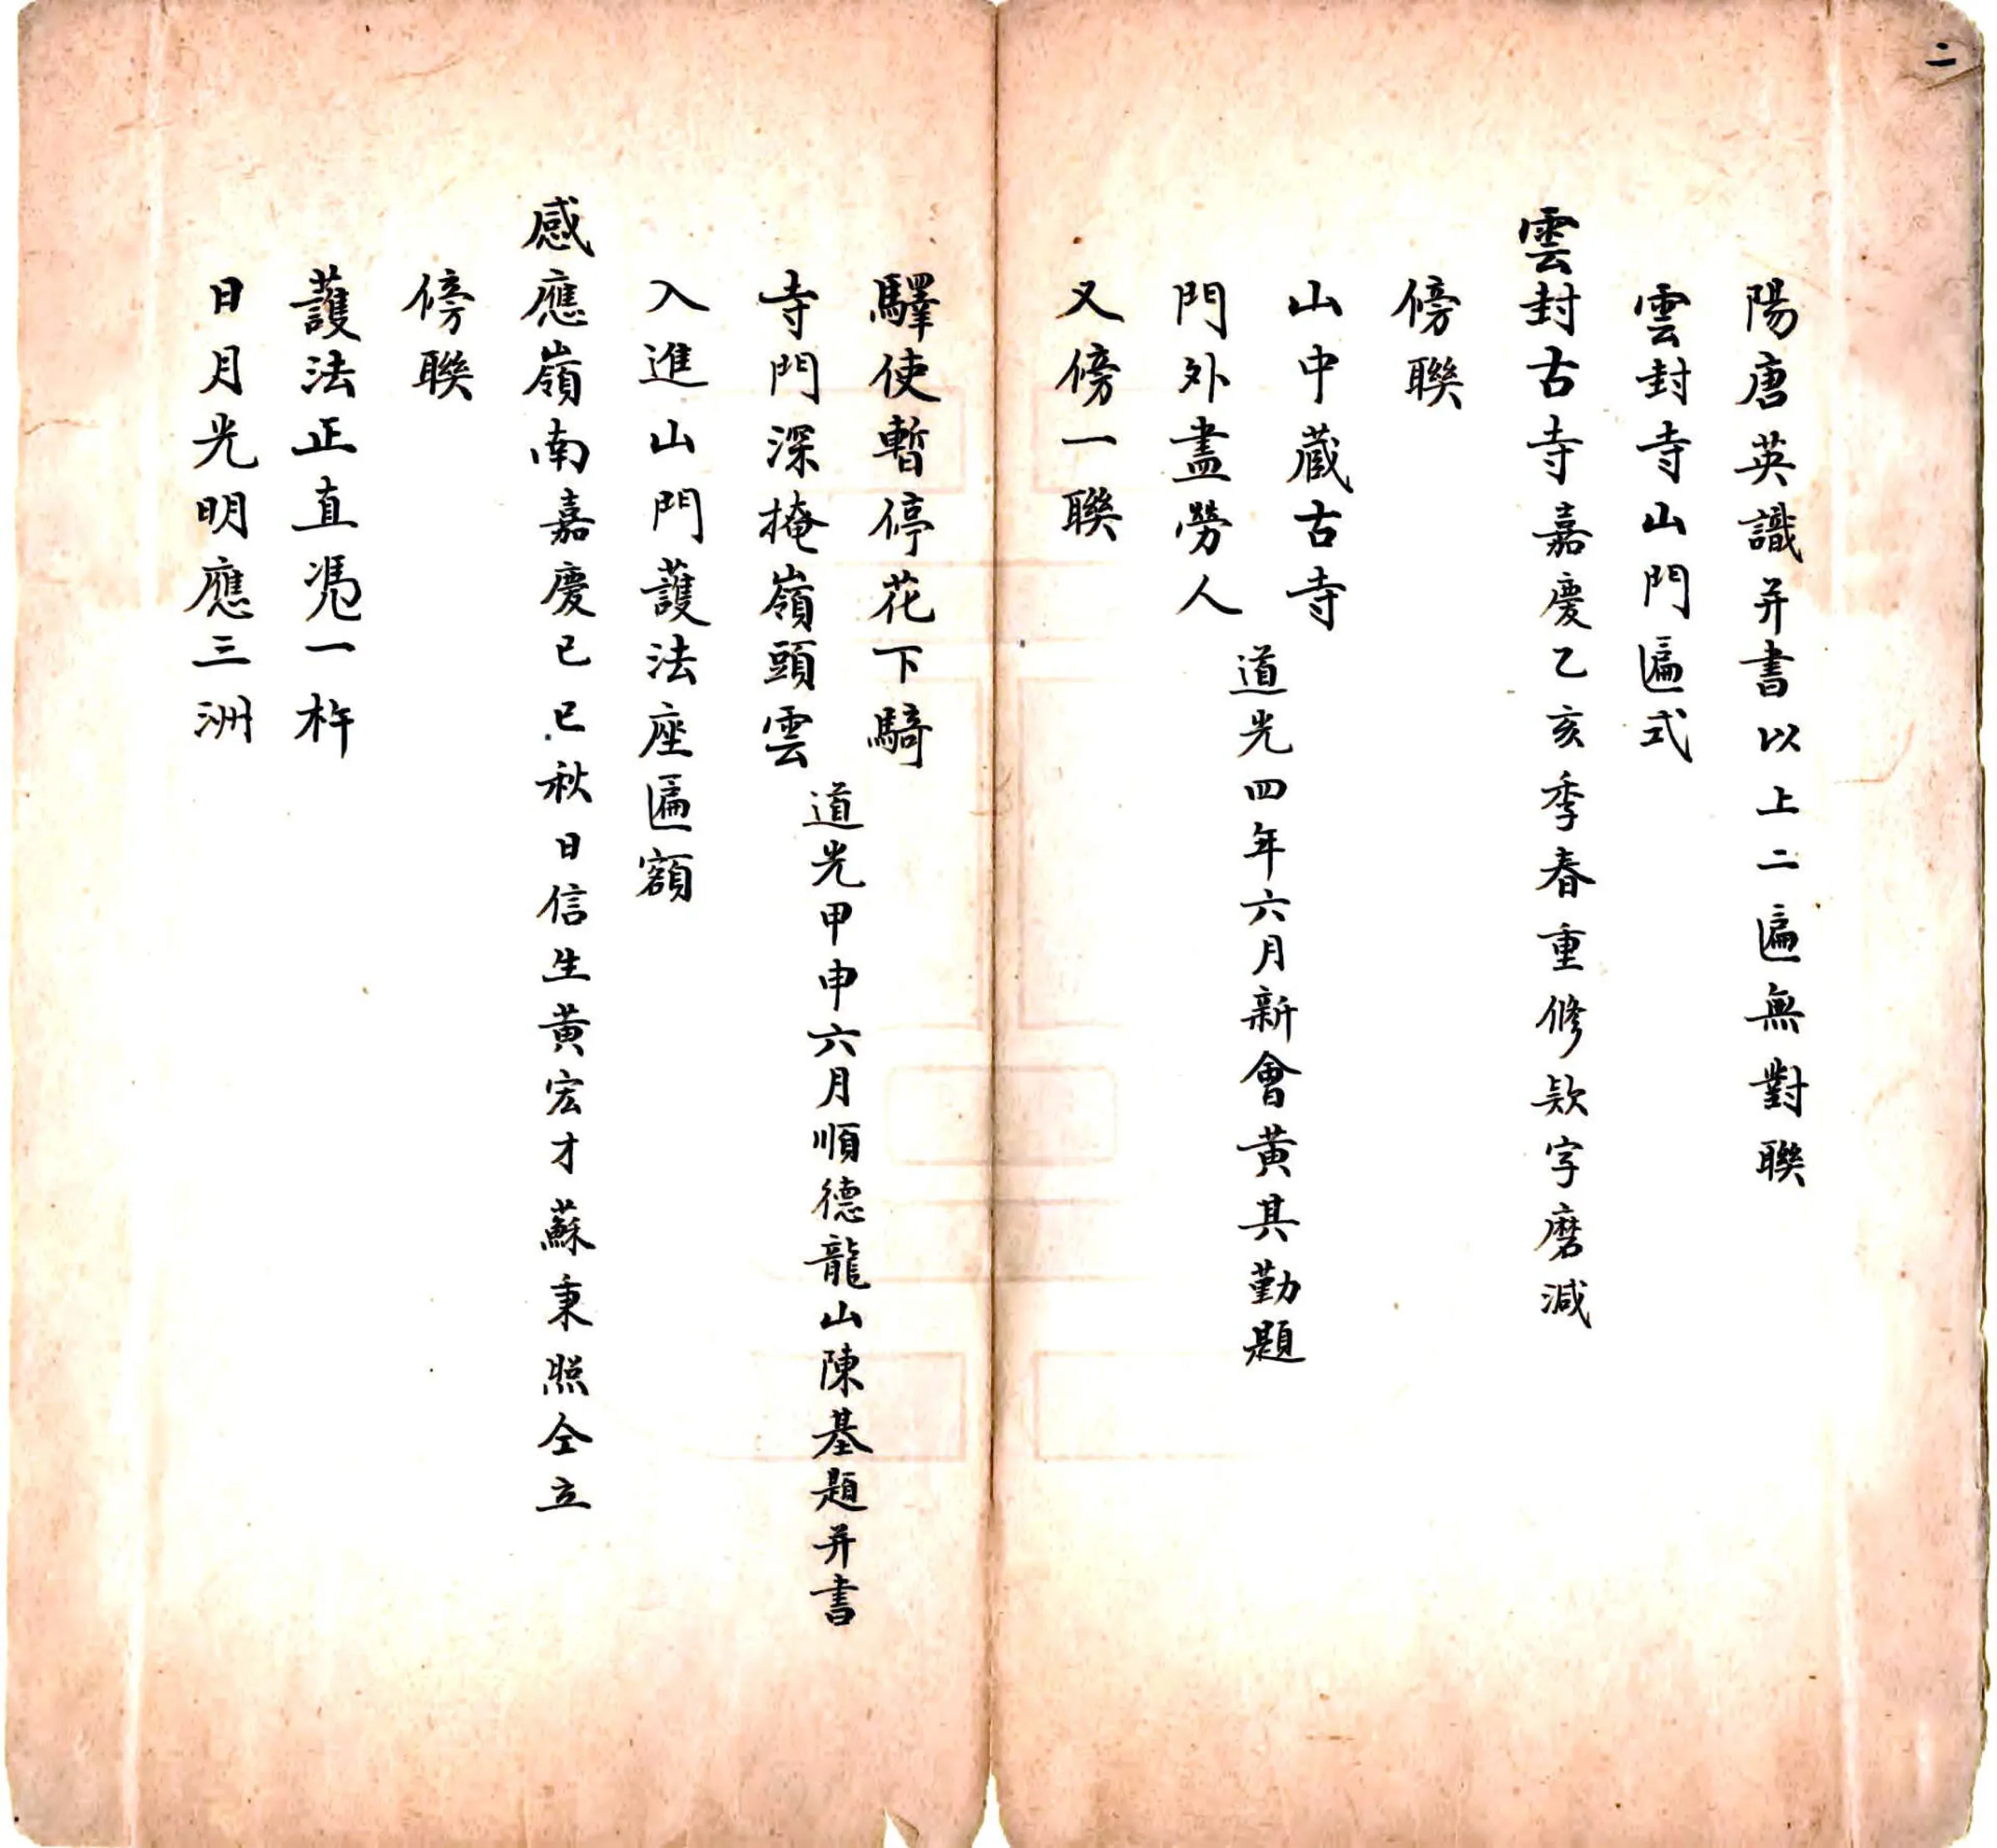 二
陽唐英識并書以上二匾無對聯
雲封寺山門匾式
雲封古寺嘉慶乙亥季春重修欵字磨減
傍聯
山中蔵古寺
門外盡勞人
道光四年六月新會黄其勤題
又傍一聯
驛使暫停花下騎
寺門深掩嶺頭雲
道光甲申六月順德龍山陳基題并書
入進山門護法座匾額
感應嶺南嘉慶己巳秋日信生黄宏才蘇秉照仝立
傍聯
護法正直凴一杵
日月光明應三洲